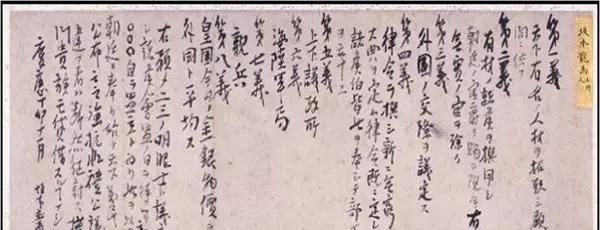 坂本龍馬
第一義
天下有名ノ人材ヲ招致シ顧
問ニ供フ
第二義
有材ノ諸侯ヲ撰用シ
朝廷ノ官爵ヲ賜ヒ現今有
名無実ノ官ヲ除ク
第三義
外国ノ交際ヲ議定ス
第四義
律令ヲ撰シ新ニ無窮
大典ヲ定ム律令既ニ定レ
諸侯伯皆此ヲ奉シテ部下
第五義
上下議政所
第六義
海陸軍局
第七義
親兵
第八義
皇国今日ノ金銀物価ヲ
外国ト平均ス
右預メ二三ノ明眼士ト議
シ諸侯会盟ノ日ヲ待ツテ
○○○自ラ盟主ト為リ此ヲ以
朝廷ニ奉リ始テ天下万民
公布云云強抗非礼公議
違フ者ハ断然征討ス権
門貴族モ貸借スルコトナシ
慶応丁卯十一月 坂本直